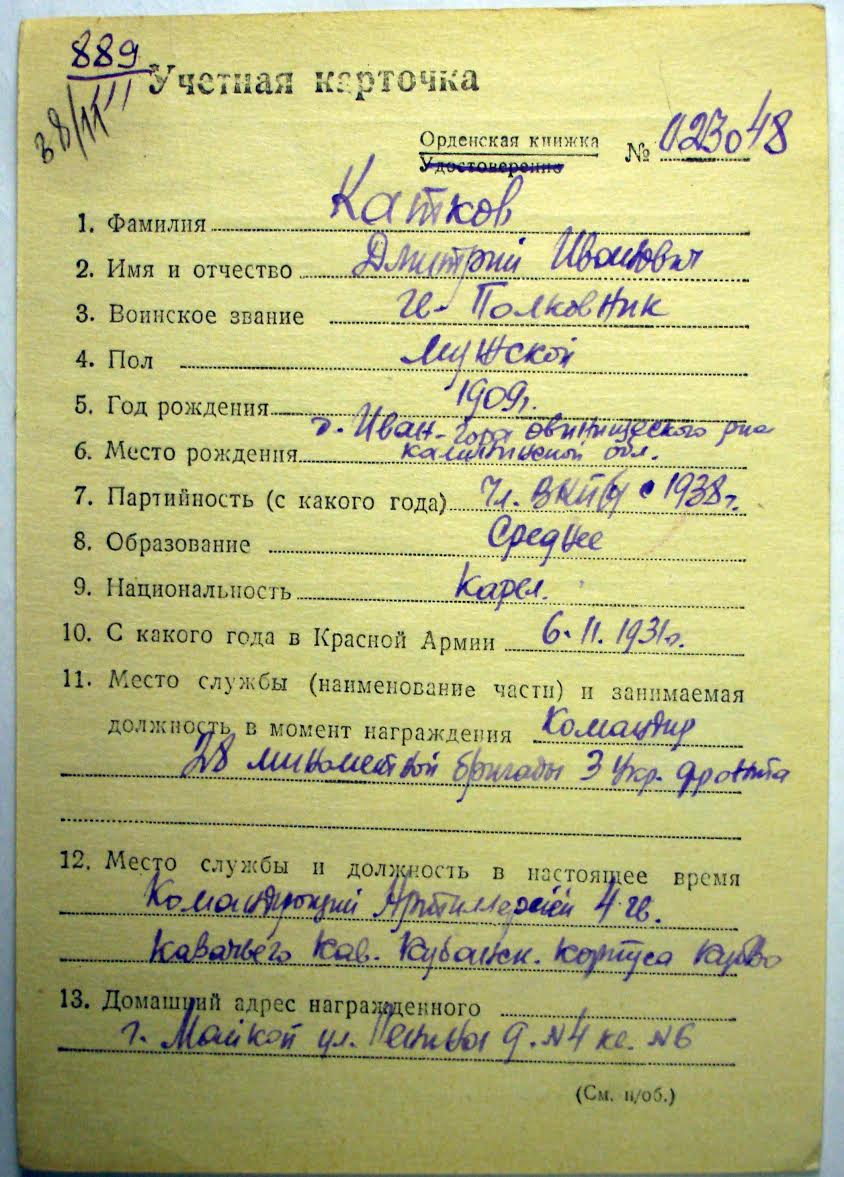 889
38/11
Учетная карточка
Орденская книжка № 023048
Удостоверение
1. Фамилия Катков
2. Имя и отчество Дмитрий Иванович
3. Воинское звание гв. Полковник
4. Пол мужской
5. Год рождения 1909г.
д. Иван-гора Овинищеского р-на
6. Место рождения Калининской обл.
7. Партийность (с какого года) Чл. ВКП(б) с 1938г.
8. Образование Среднее
9. Национальность Карел.
10. С какого года в Красной Армии 6.11.1931г.
11. Место службы (наименование части) и занимаемая
должность в момент награждения Командир
28 минометной бригады 3 Укр. фронта
12. Место службы и должность в настоящее время
Командующий Артиллерией 4 гв.
Казачьего Кав. Кубанск. корпуса
13. Домашний адрес награжденного
г. Майкоп ул. Ленина д. №4 кв. №6
(См. н/об.)